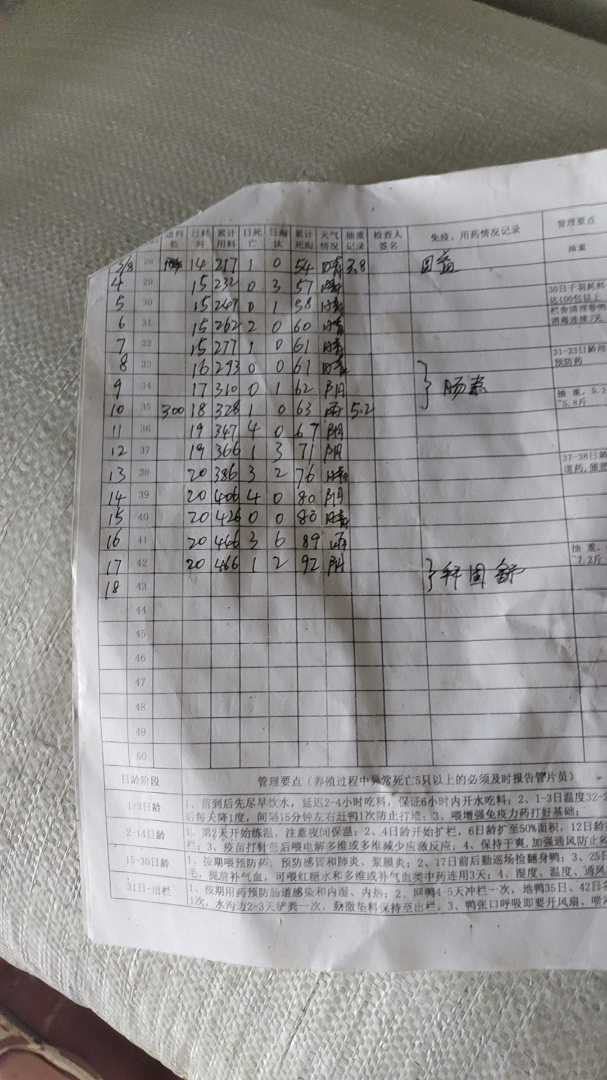 进料数 日耗料 累计用料 日死亡 日淘汰 累计死淘 天气情况 抽重记录 检查人签名 免疫、用药情况记录 管理要点
抽重
3/8 28 14 217 1 0 54 晴 3.8
4 29 15 232 0 3 57 晴
5 30 15 247 0 1 58 晴
6 31 15 262 2 0 60 晴
7 32 15 277 1 0 61 晴
8 33 16 293 0 0 61 晴
31-33日龄用
预防药
9 34 17 310 0 1 62 阴
10 35 300 18 328 1 0 63 雨 5.2
抽重,5.2
~5.8斤
11 36 19 347 4 0 67 阴
12 37 19 366 1 3 71 阴
13 38 20 386 3 2 76 晴
14 39 20 406 4 0 80 阴
15 40 20 426 0 0 80 晴
16 41 20 446 3 6 89 雨
17 42 20 466 1 2 92 阴
抽重,
~7.2斤
18 43
44
45
46
47
48
49
50
日龄阶段 管理要点(养殖过程中异常死亡5只以上的必须及时报告管片员)
1-3日龄 1、苗到后先尽早饮水,延迟2-4小时吃料,保证6小时内开水吃料;2、1-3日温度32-
后每天降1度,间隔15分钟左右赶鸭1次防止打堆;3、喂增强免疫力药打好基础;
2-14日龄 1、第2天开始炼温,注意夜间保温;2、4日龄开始扩栏,6日龄扩至50%面积,12日龄
栏;3、疫苗打针前后喂电解多维或多维减少应激反应,4、保持干爽,加强通风防止
15-30日龄 1、按期喂预防药,预防感冒和肺炎、浆膜炎;2、17日前后勤巡场捡翻身鸭;3、25日
毛,提前补气血,可喂红糖水和多维或补气血类中药连用3天;4、湿度、温度、通风
31日-出栏 1、按期用药预防肠道感染和内湿、内热;2、网鸭4-5天冲栏一次,地鸭35日、42日
1次,水沟边2-3天铲粪一次,勤撒垫料保持至出栏。3、鸭张口呼吸即要开风扇、喷